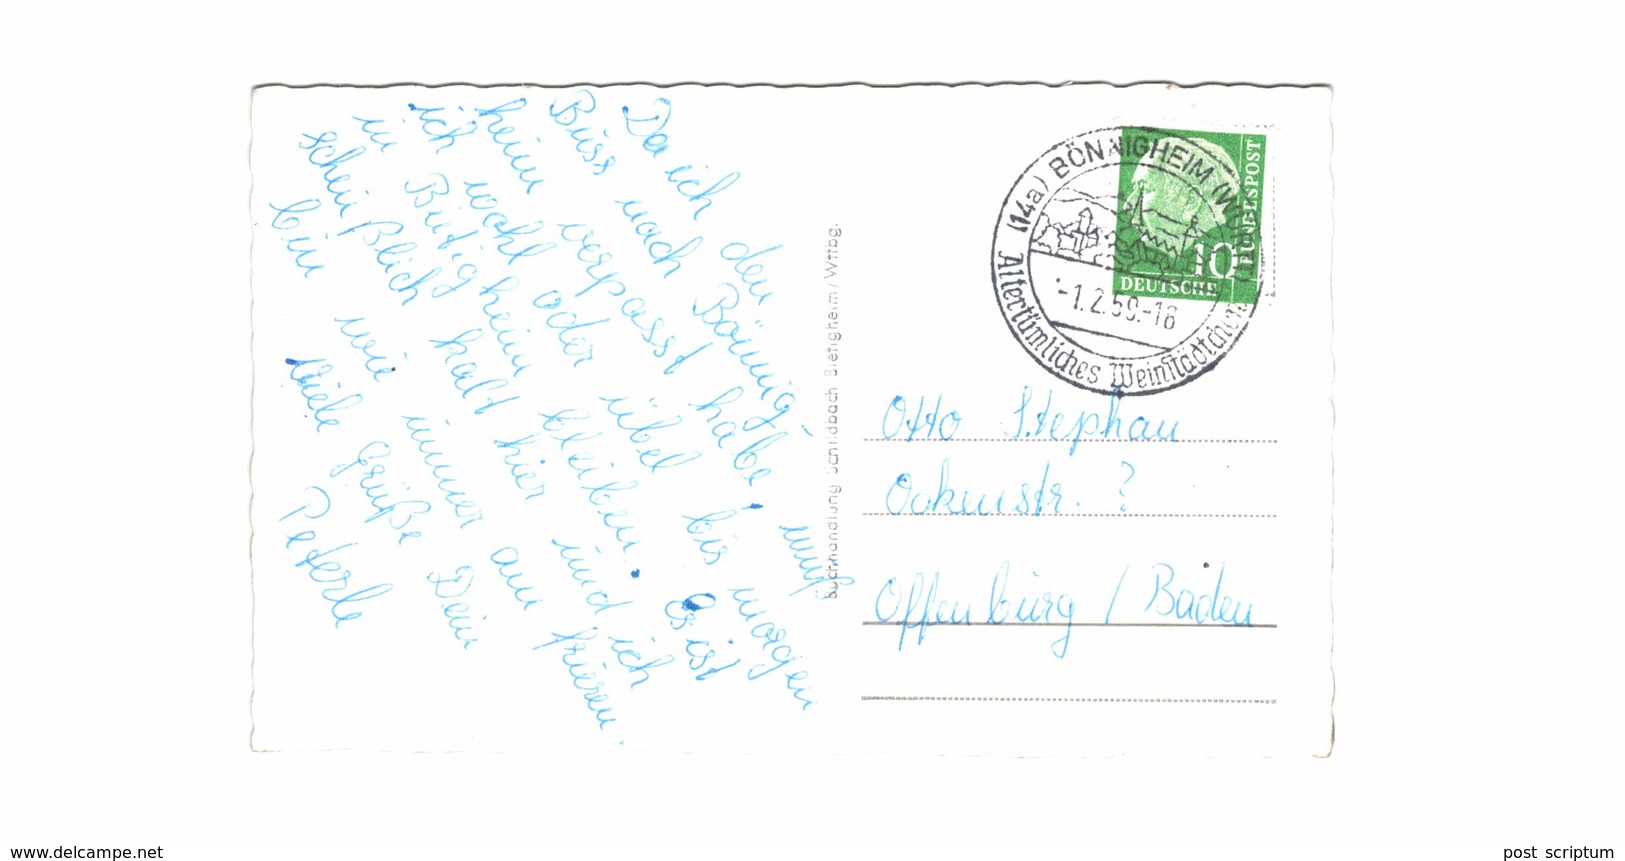 Da ich den
Buss nach Bönnig-
heim verpasst habe, muß
ich wohl oder übel bis morgen
in Bütigheim bleiben. Es ist
scheinßlich kalt hier und ich
bin wie immer am frieren.
Viele Grüße Dein
Peterle
Buchhandlung Schildbach Bietigheim/Wttbg.
(14a) BÖNNIGHEIM (WÜRTT)
Altertümliches Weinstädtchen
-1.2.59.-18
DEUTSCHE
BUNDESPOST
10
Otto Stephan
Ockenstr. ?
Offenburg / Baden
www.delcampe.net
post scriptum